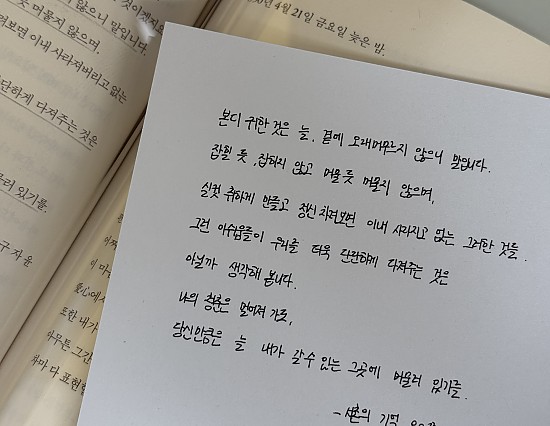 것이겠지요
않으니 말입니다.
듯 머물지 않으며,
려보면 이내 사라져버리고 없는
단하게 다져주는 것은
물러 있기를.
구 자 윤
4월 21일 금요일 늦은 밤.
이 마
愛心에서
또한 내가
아무튼 그간
차마 다 표현할
본디 귀한 것은 늘, 곁에 오래머무르지 않으니 말입니다.
잡힐 듯, 잡히지 않고 머물 듯 머물지 않으며,
실컷 취하게 만들고 정신차려보면 이내 사라지고 없는 그러한 것들.
그런 아쉬움들이 우리를 더욱 단단하게 다져주는 것은
아닐까 생각해 봅니다.
나의 청춘은 멀어져 가도,
당신만큼은 늘 내가 갈수 있는 그곳에 머물러 있기를.
- 서촌의 기억